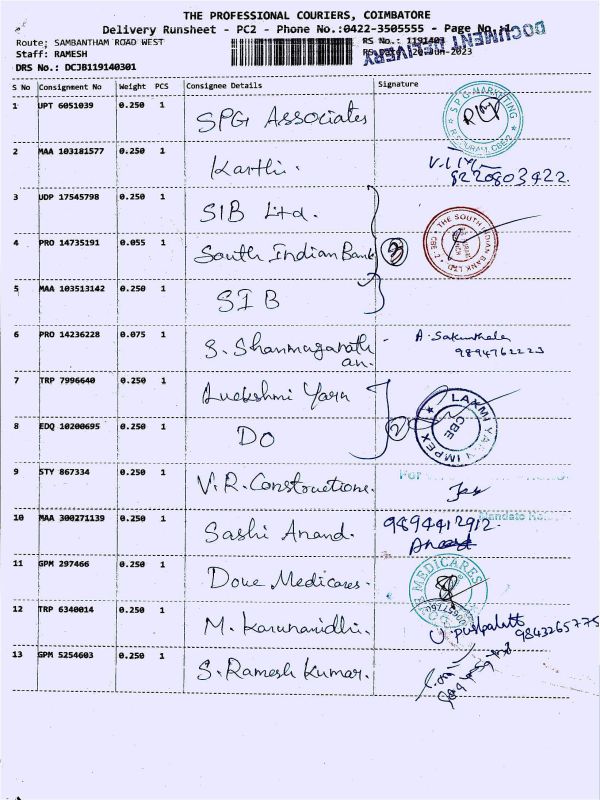 THE PROFESSIONAL COURIERS, COIMBATORE
Delivery Runsheet - PC2 - Phone No.:0422-3505555 - Page No.:1
DOCUMENT DELIVERY
Route: SAMBANTHAM ROAD WEST
RS No.: 1191403
Staff: RAMESH
-Jun-2023
DRS No.: DCJB119140301
S No Consignment No Weight PCS Consignee Details Signature
1 UPT 6051039 0.250 1 SPG Associates
SPG MARKETING
2 MAA 103181577 0.250 1 Karthi.
8220803422.
3 UDP 17545798 0.250 1 SIB Ltd.
4 PRO 14735191 0.055 1 South Indian Bank 3
THE SOUTH INDIAN BANK LTD
CBE-2
5 MAA 103513142 0.250 1 SIB
6 PRO 14236228 0.075 1 S. Shanmuganath
an.
A. Sakunthala
9894762223
7 TRP 7996640 0.250 1 Luckshmi Yarn
8 EDQ 10200695 0.250 1 DO 2
LAXMI YARN IMPEX
CBE
9 STY 867334 0.250 1 V.R. Constructions.
For
10 MAA 300271139 0.250 1 Sashi Anand.
9894412912.
Anand
11 GPM 297466 0.250 1 Dove Medicares.
MEDICARES
12 TRP 6340014 0.250 1 M. Karunanidhi.
9843265775
13 GPM 5254603 0.250 1 S. Ramesh Kumar.